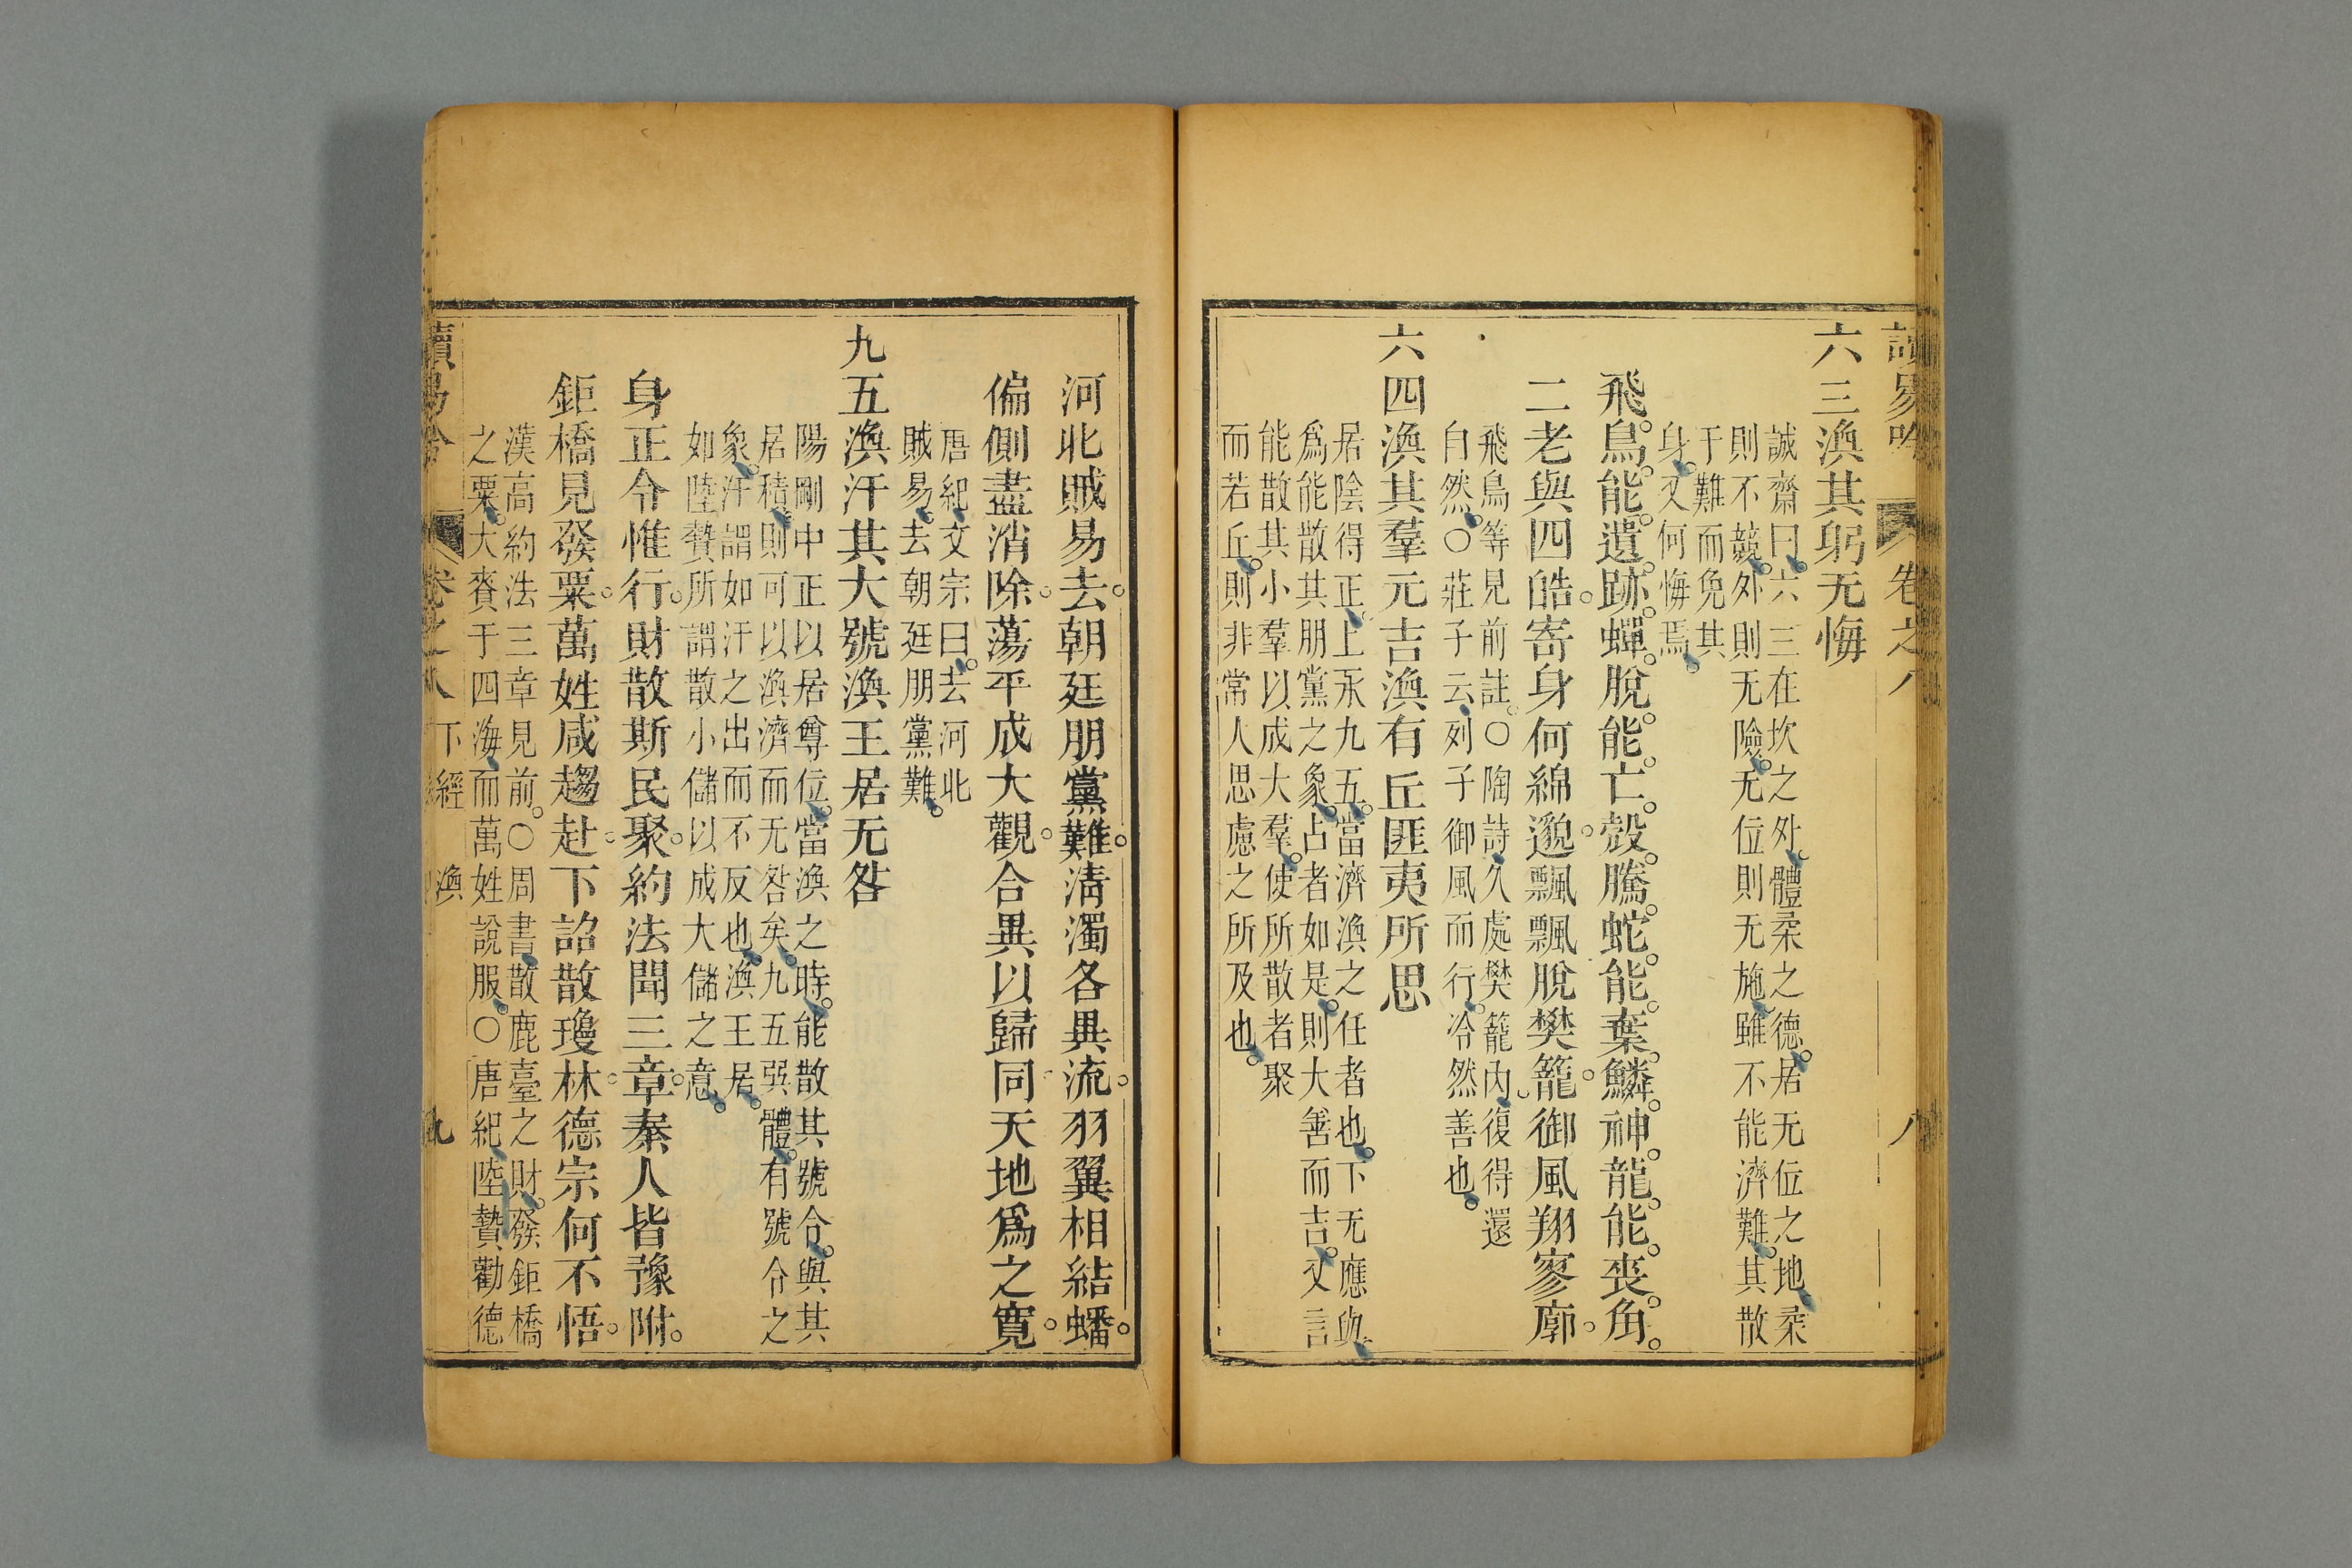 讀易吟 卷之八 八
六三渙其躬无悔
誠齋曰六三在坎之外體柔之德居无位之地柔
則不競外則无險无位則无施雖不能濟難其散
于難而免其
身又何悔焉
飛鳥能遺跡蟬脫能亡殼騰蛇能棄鱗神龍能喪角
二老與四皓寄身何綿邈飄飄脫樊籠御風翔寥廓
飛鳥等見前註○陶詩久處樊籠內復得還
自然○莊子云列子御風而行冷然善也
六四渙其羣元吉渙有丘匪夷所思
居陰得正上承九五當濟渙之任者也下无應與
爲能散其朋黨之象占者如是則大善而吉又言
能散其小羣以成大羣使所散者聚
而若丘則非常人思慮之所及也
河北賊易去朝廷朋黨難淸濁各異流羽翼相結蟠
偏側盡消除蕩平成大觀合異以歸同天地爲之寬
唐紀文宗曰去河北
賊易去朝廷朋黨難
九五渙汗其大號渙王居无咎
陽剛中正以居尊位當渙之時能散其號令與其
居積則可以渙濟而无咎矣九五巽體有號令之
象汗謂如汗之出而不反也渙王居
如陸贄所謂散小儲以成大儲之意
身正令惟行財散斯民聚約法聞三章秦人皆豫附
鉅橋見發粟萬姓咸趨赴下詔散瓊林德宗何不悟
漢高約法三章見前○周書散鹿臺之財發鉅橋
之粟大賚于四海而萬姓說服○唐紀陸贄勸德
讀易吟 卷之八 下經 渙 九